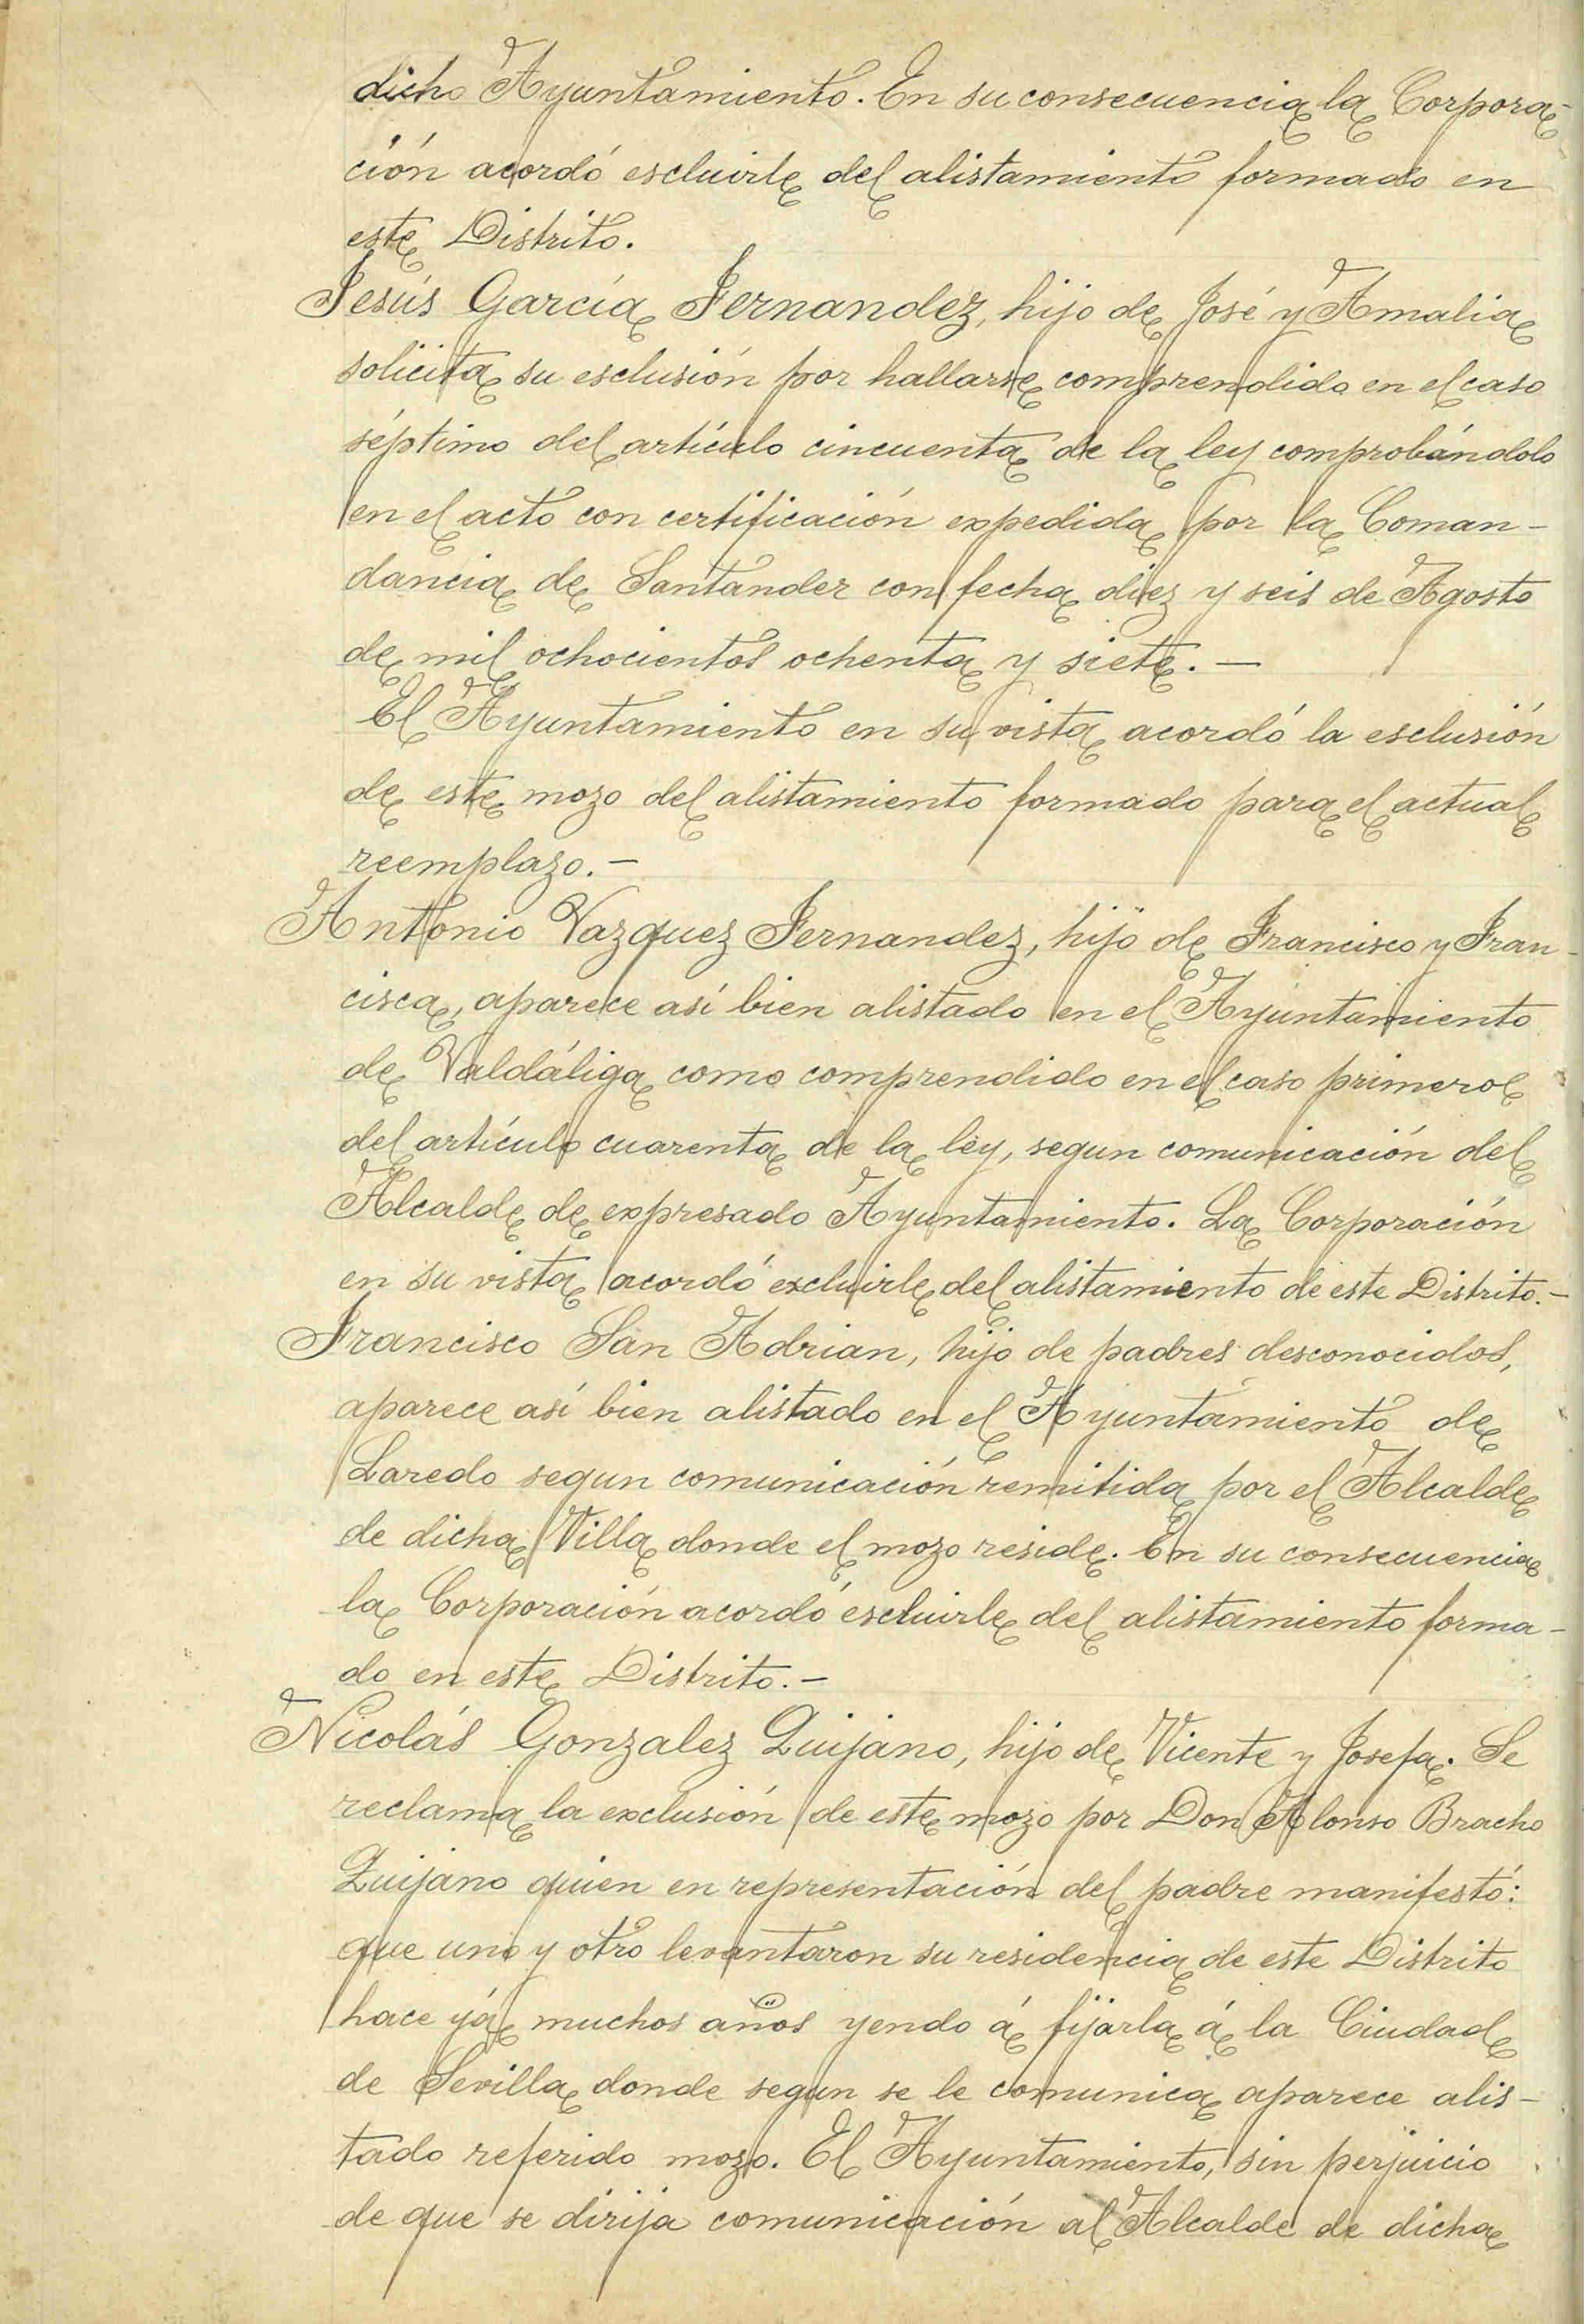 dicho Ayuntamiento. En su consecuencia la Corpora-
ción acordó escluirle del alistamiento formado en
este Distrito.
Jesús García Fernandez, hijo de José y Amalia
solicita su esclusión por hallarse comprendido en el caso
séptimo del artículo cincuenta de la ley comprobándolo
en el acto con certificación expedida por la Coman-
dancia de Santander con fecha diez y seis de Agosto
de mil ochocientos ochenta y siete. —
El Ayuntamiento en su vista acordó la esclusión
de este mozo del alistamiento formado para el actual
reemplazo. —
Antonio Vazquez Fernandez, hijo de Francisco y Fran-
cisca, aparece así bien alistado en el Ayuntamiento
de Valdáliga como comprendido en el caso primero
del artículo cuarenta de la ley, segun comunicación del
Alcalde de expresado Ayuntamiento. La Corporación
en su vista acordó excluirle del alistamiento de este Distrito. —
Francisco San Adrian, hijo de padres desconocidos,
aparece así bien alistado en el Ayuntamiento de
Laredo segun comunicación remitida por el Alcalde
de dicha Villa donde el mozo reside. En su consecuencia
la Corporación acordó escluirle del alistamiento forma-
do en este Distrito. —
Nicolás Gonzalez Quijano, hijo de Vicente y Josefa. Se
reclama la exclusión de este mozo por Don Alonso Bracho
Quijano quien en representación del padre manifestó:
que uno y otro levantaron su residencia de este Distrito
hace yá muchos años yendo á fijarla á la Ciudad
de Sevilla donde segun se le comunica aparece alis-
tado referido mozo. El Ayuntamiento, sin perjuicio
de que se dirija comunicación al Alcalde de dicha